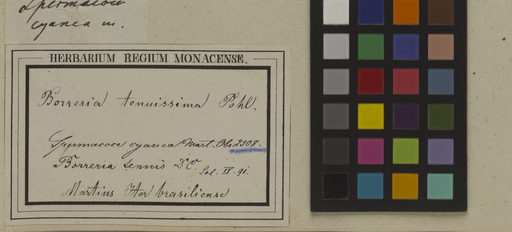 Spermacoce
cyanea m.
HERBARIUM REGIUM MONACENSE.
Borreria tenuissima Pohl.
Spermacoce cyanea Mart. Obs. 2308.
Borreria tenuis DC.
Sel. IV. 91.
Martius Iter brasiliense